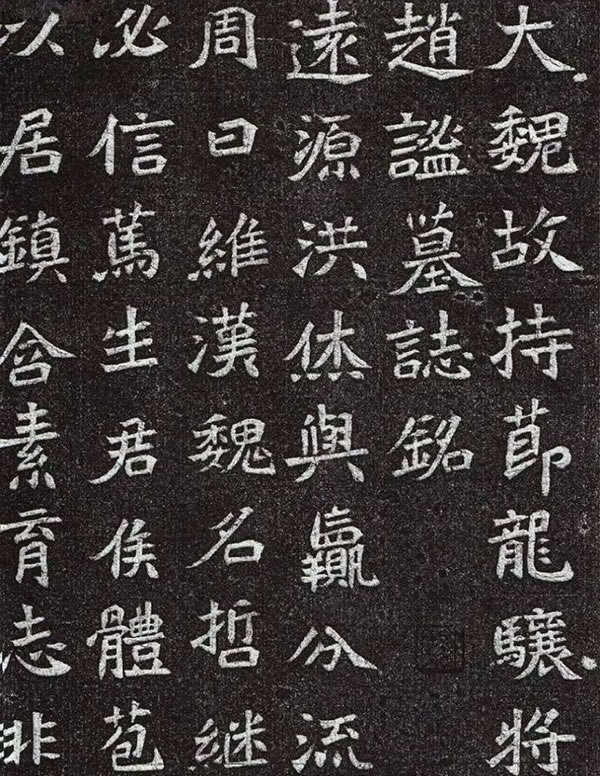 大魏故持莭龍驤將
趙謐墓誌銘
遠源洪烋與贏分流
周曰維漢魏名哲継
必信䔍生君侯體苞
以居鎮含素育志非